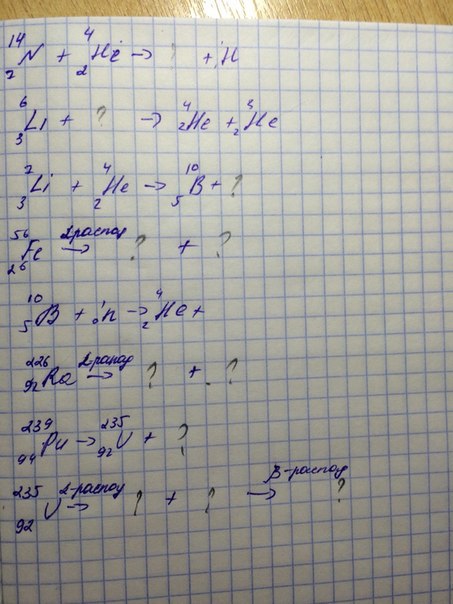 ¹⁴₇N + ⁴₂He → ? + ¹₁H
⁶₃Li + ? → ⁴₂He + ³₂He
⁷₃Li + ⁴₂He → ¹⁰₅B + ?
⁵⁶₂₆Fe α-распад → ? + ?
¹⁰₅B + ¹₀n → ⁴₂He +
²²⁶₉₂Ra α-распад → ? + ?
²³⁹₉₄Pu → ²³⁵₉₂U + ?
²³⁵₉₂U α-распад → ? + ? β-распад → ?